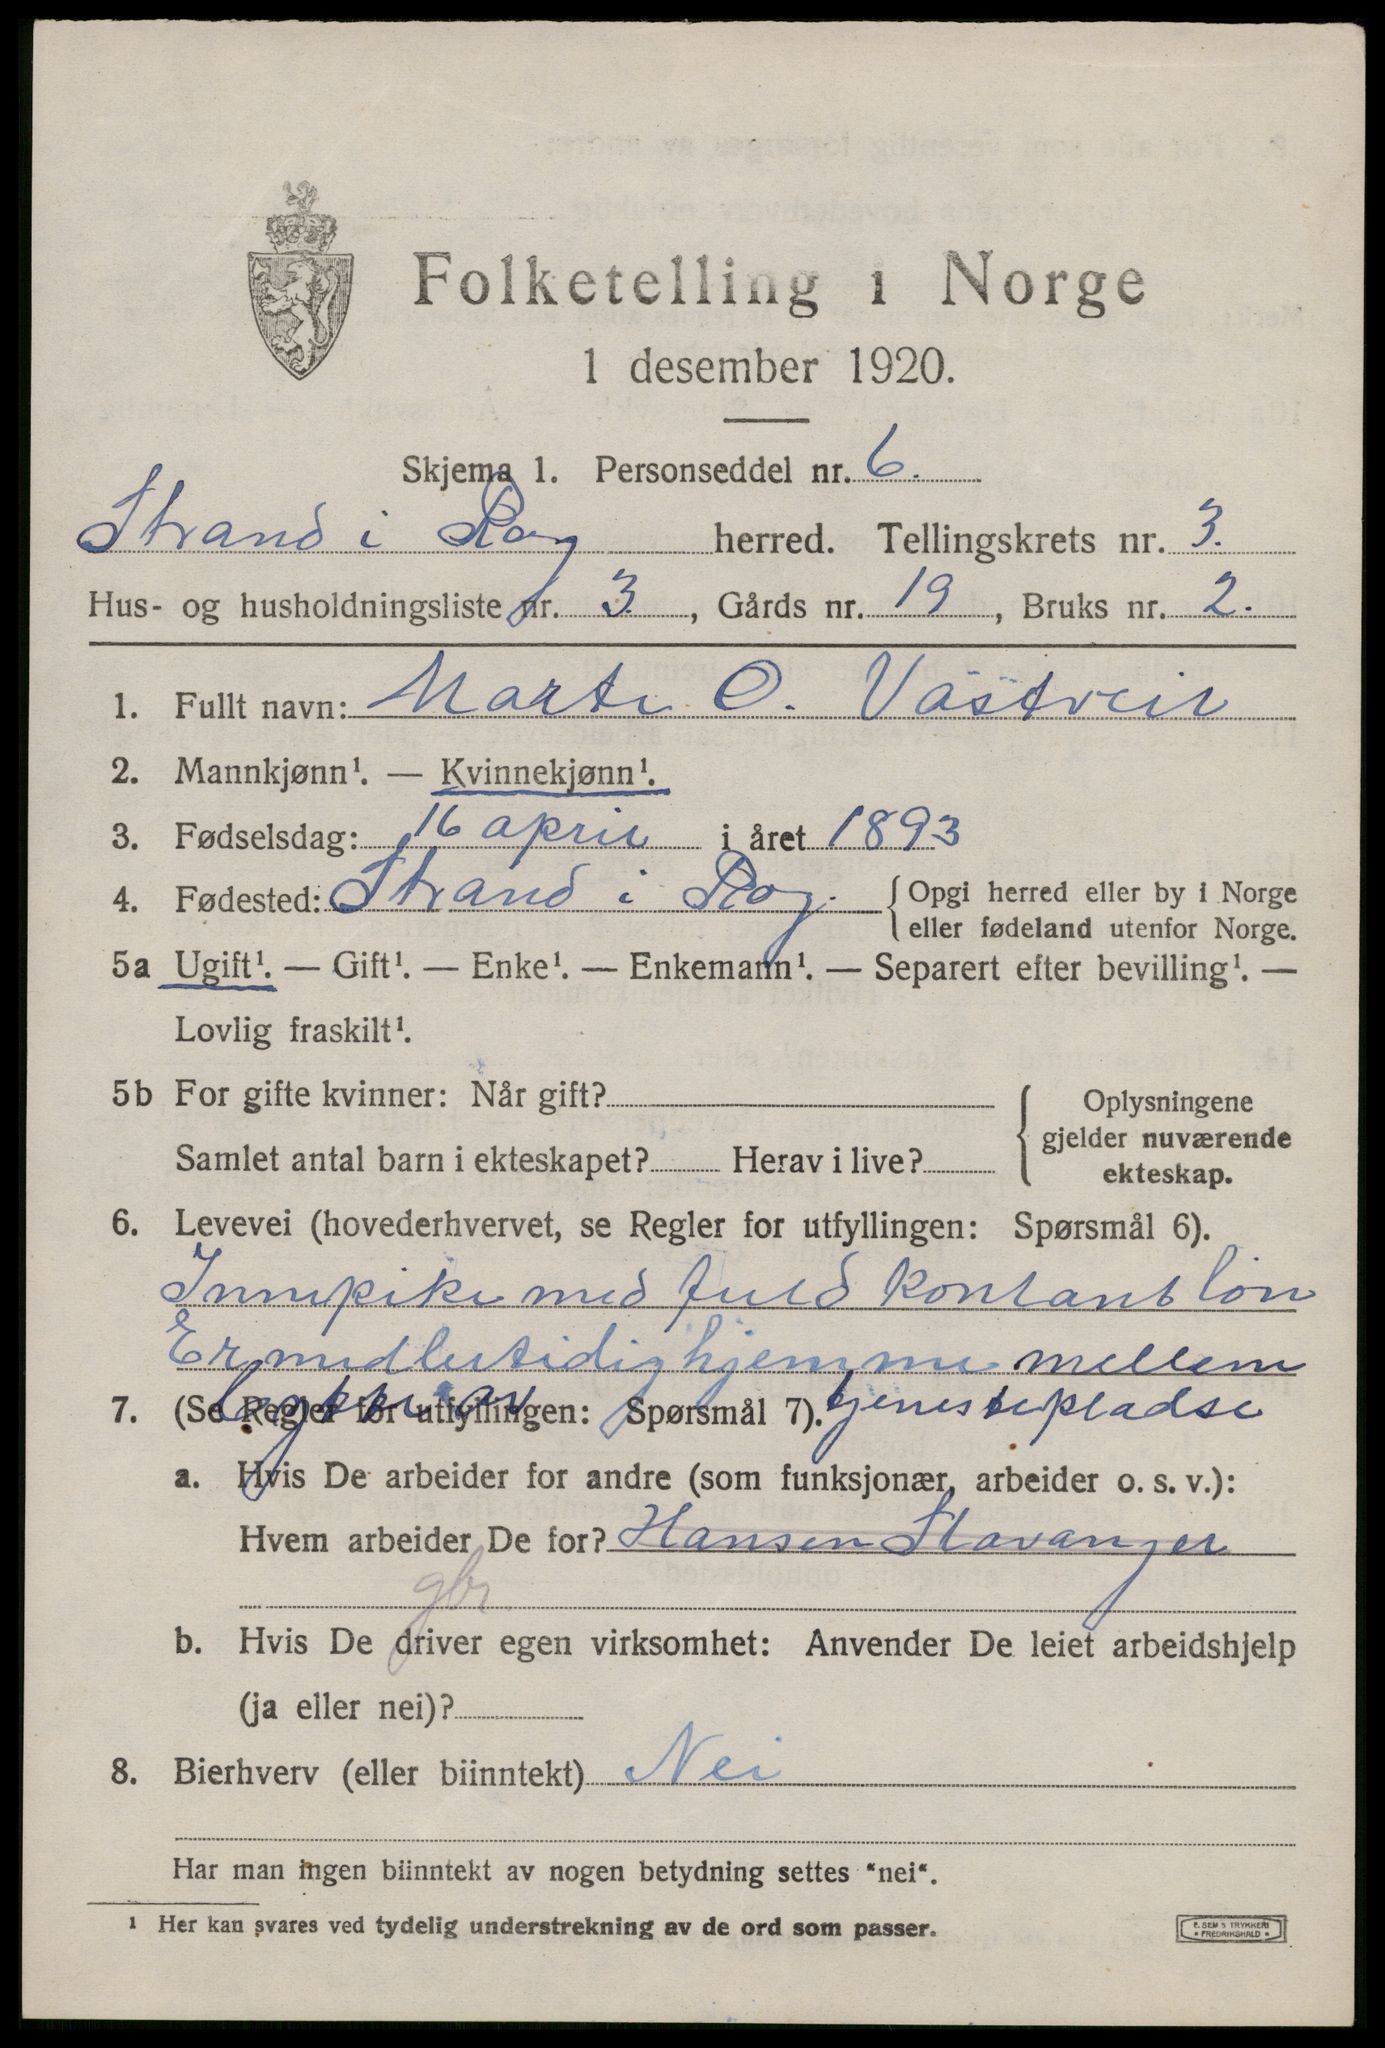 Folketelling i Norge
1 desember 1920.
Skjema 1. Personseddel nr. 6.
Strand i Rog herred. Tellingskrets nr. 3.
Hus- og husholdningsliste nr. 3, Gårds nr. 19, Bruks nr. 2.
1. Fullt navn: Marta O. Västveit
2. Mannkjønn¹. — Kvinnekjønn¹.
3. Fødselsdag: 16 april i året 1893
4. Fødested: Strand i Rog. { Opgi herred eller by i Norge
eller fødeland utenfor Norge.
5a Ugift¹. — Gift¹. — Enke¹. — Enkemann¹. — Separert efter bevilling¹. —
Lovlig fraskilt¹.
5b For gifte kvinner: Når gift?
Samlet antal barn i ekteskapet? Herav i live?
{ Oplysningene
gjelder nuværende
ekteskap.
6. Levevei (hovederhvervet, se Regler for utfyllingen: Spørsmål 6).
Innepike med fuld kontant lön
Er midlertidig hjemme mellem
tjenestepladse
7. (Se Regler for utfyllingen: Spørsmål 7).
a. Hvis De arbeider for andre (som funksjonær, arbeider o. s. v.):
Hvem arbeider De for? Hansen Stavanger
gbr
b. Hvis De driver egen virksomhet: Anvender De leiet arbeidshjelp
(ja eller nei)?
8. Bierhverv (eller biinntekt) Nei
Har man ingen biinntekt av nogen betydning settes "nei".
¹ Her kan svares ved tydelig understrekning av de ord som passer.
E. SEM'S TRYKKERI
* FREDRIKSHALD *